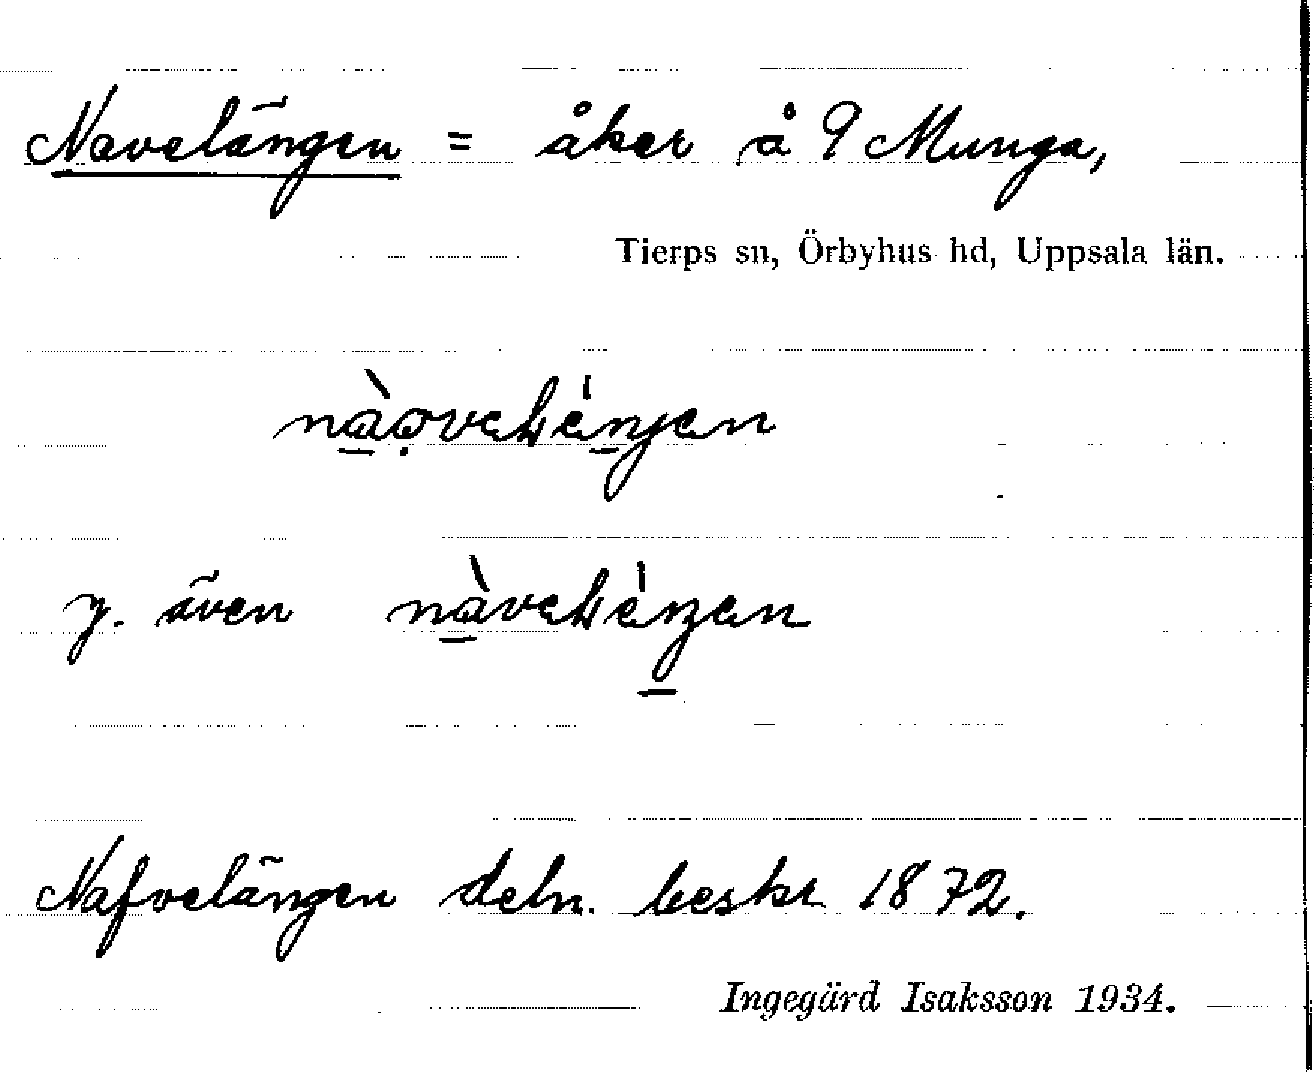 Navelängen = åker å 9 Munga,
Tierps sn, Örbyhus hd, Uppsala län.
y. även
Nafvelängen deln. beskr 1872.
Ingegärd Isaksson 1934.